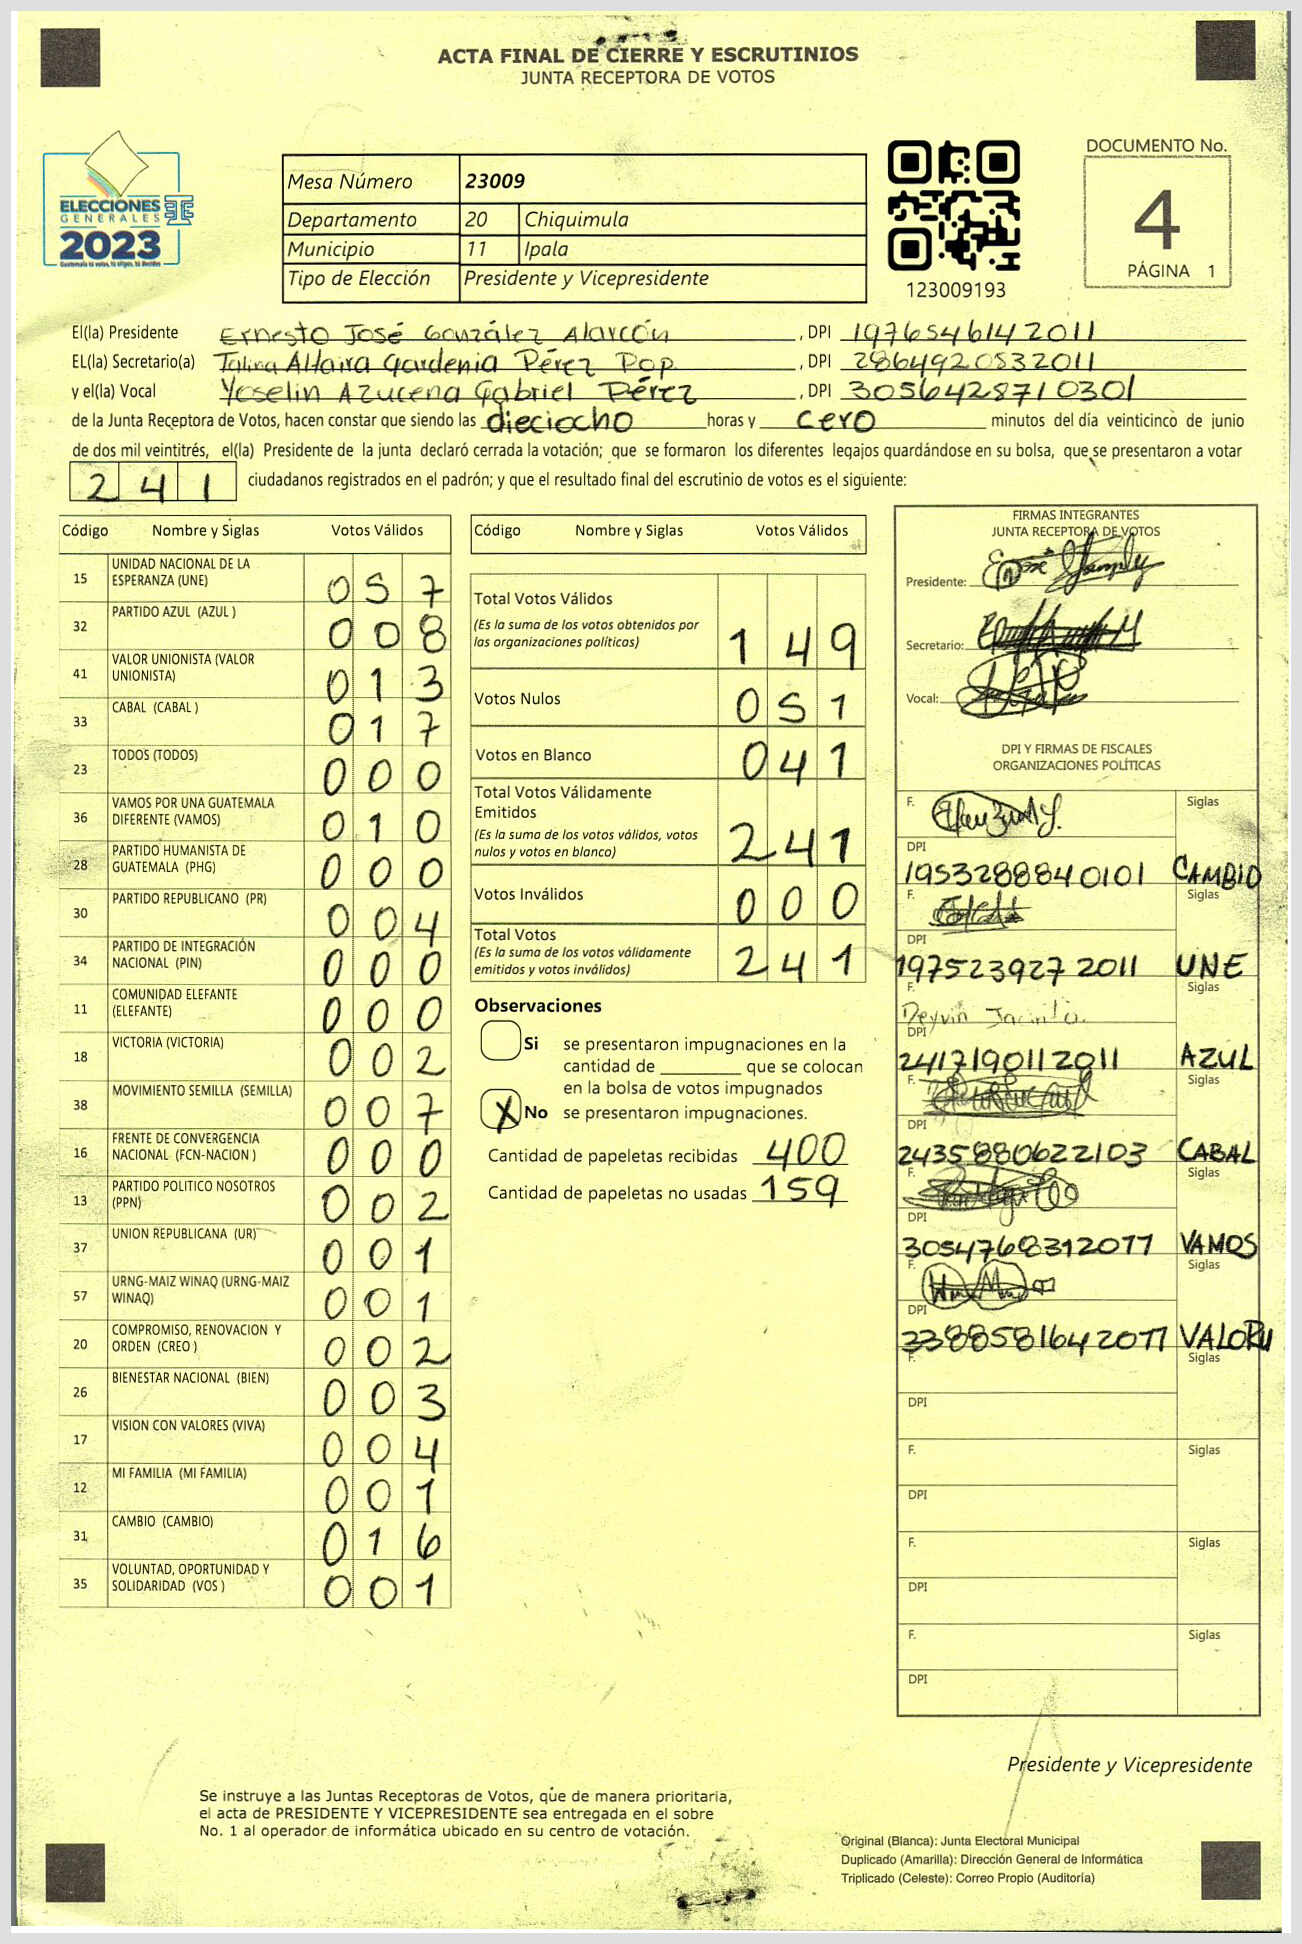 ACTA FINAL DE CIERRE Y ESCRUTINIOS
JUNTA RECEPTORA DE VOTOS
ELECCIONES
GENERALES
2023
Mesa Número 23009
Departamento 20 Chiquimula
Municipio 11 Ipala
Tipo de Elección Presidente y Vicepresidente
123009193
DOCUMENTO No.
4
PÁGINA 1
El(la) Presidente Ernesto José González Alarcón , DPI 1976546142011
EL(la) Secretario(a) Altaira Gardenia Pérez Pop. , DPI 2864920532011
y el(la) Vocal Yoselin Azucena Gabriel Pérez , DPI 3056428710301
de la Junta Receptora de Votos, hacen constar que siendo las dieciocho horas y cero minutos del día veinticinco de junio
de dos mil veintitrés, el(la) Presidente de la junta declaró cerrada la votación; que se formaron los diferentes legajos guardándose en su bolsa, que se presentaron a votar
241 ciudadanos registrados en el padrón; y que el resultado final del escrutinio de votos es el siguiente:
Código Nombre y Siglas Votos Válidos
15 UNIDAD NACIONAL DE LA ESPERANZA (UNE) 057
32 PARTIDO AZUL (AZUL ) 008
41 VALOR UNIONISTA (VALOR UNIONISTA) 013
33 CABAL (CABAL ) 017
23 TODOS (TODOS) 000
36 VAMOS POR UNA GUATEMALA DIFERENTE (VAMOS) 010
28 PARTIDO HUMANISTA DE GUATEMALA (PHG) 000
30 PARTIDO REPUBLICANO (PR) 004
34 PARTIDO DE INTEGRACIÓN NACIONAL (PIN) 000
11 COMUNIDAD ELEFANTE (ELEFANTE) 000
18 VICTORIA (VICTORIA) 002
38 MOVIMIENTO SEMILLA (SEMILLA) 007
16 FRENTE DE CONVERGENCIA NACIONAL (FCN-NACION ) 000
13 PARTIDO POLITICO NOSOTROS (PPN) 002
37 UNION REPUBLICANA (UR) 001
57 URNG-MAIZ WINAQ (URNG-MAIZ WINAQ) 001
20 COMPROMISO, RENOVACION Y ORDEN (CREO ) 002
26 BIENESTAR NACIONAL (BIEN) 003
17 VISION CON VALORES (VIVA) 004
12 MI FAMILIA (MI FAMILIA) 001
31 CAMBIO (CAMBIO) 016
35 VOLUNTAD, OPORTUNIDAD Y SOLIDARIDAD (VOS ) 001
Código Nombre y Siglas Votos Válidos
Total Votos Válidos
(Es la suma de los votos obtenidos por
las organizaciones políticas) 149
Votos Nulos 051
Votos en Blanco 041
Total Votos Válidamente
Emitidos
(Es la suma de los votos válidos, votos
nulos y votos en blanco) 241
Votos Inválidos 000
Total Votos
(Es la suma de los votos válidamente
emitidos y votos inválidos) 241
Observaciones
Si se presentaron impugnaciones en la
cantidad de ________ que se colocan
en la bolsa de votos impugnados
X No se presentaron impugnaciones.
Cantidad de papeletas recibidas 400
Cantidad de papeletas no usadas 159
FIRMAS INTEGRANTES
JUNTA RECEPTORA DE VOTOS
Presidente:
Secretario:
Vocal:
DPI Y FIRMAS DE FISCALES
ORGANIZACIONES POLÍTICAS
F. Siglas
DPI
1953288840101 CAMBIO
F. Siglas
DPI
197523927 2011 UNE
F. Deyvin Siglas
DPI
2417190112011 AZUL
F. Siglas
DPI
2435880622103 CABAL
F. Siglas
DPI
3054768312011 VAMOS
F. Siglas
DPI
3388581642011 VALORU
F. Siglas
DPI
F. Siglas
DPI
F. Siglas
DPI
F. Siglas
DPI
Presidente y Vicepresidente
Se instruye a las Juntas Receptoras de Votos, que de manera prioritaria,
el acta de PRESIDENTE Y VICEPRESIDENTE sea entregada en el sobre
No. 1 al operador de informática ubicado en su centro de votación.
Original (Blanca): Junta Electoral Municipal
Duplicado (Amarilla): Dirección General de Informática
Triplicado (Celeste): Correo Propio (Auditoría)